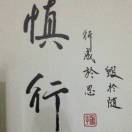 慎行
行成於思
毀於随